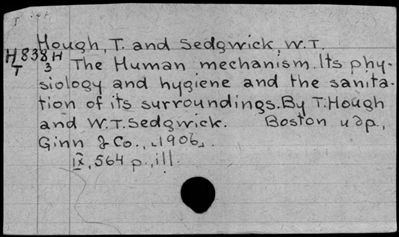 Hough, T. and Sedgwick, W.T.
H838H The Human mechanism. Its phy-
T 3
siology and hygiene and the sanita-
tion of its surroundings. By T. Hough
and W.T. Sedgwick. Boston
Ginn & Co., 1906.
IX, 564 p., ill.